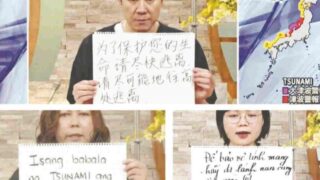 为了保护您的生
命请尽快逃离。
请尽可能地往高
处逃离
TSUNAMI
大津波警報
津波警報
Isang babala
ng TSUNAMI ang
Để bảo vệ tính mạng
hãy di tánh nan càng